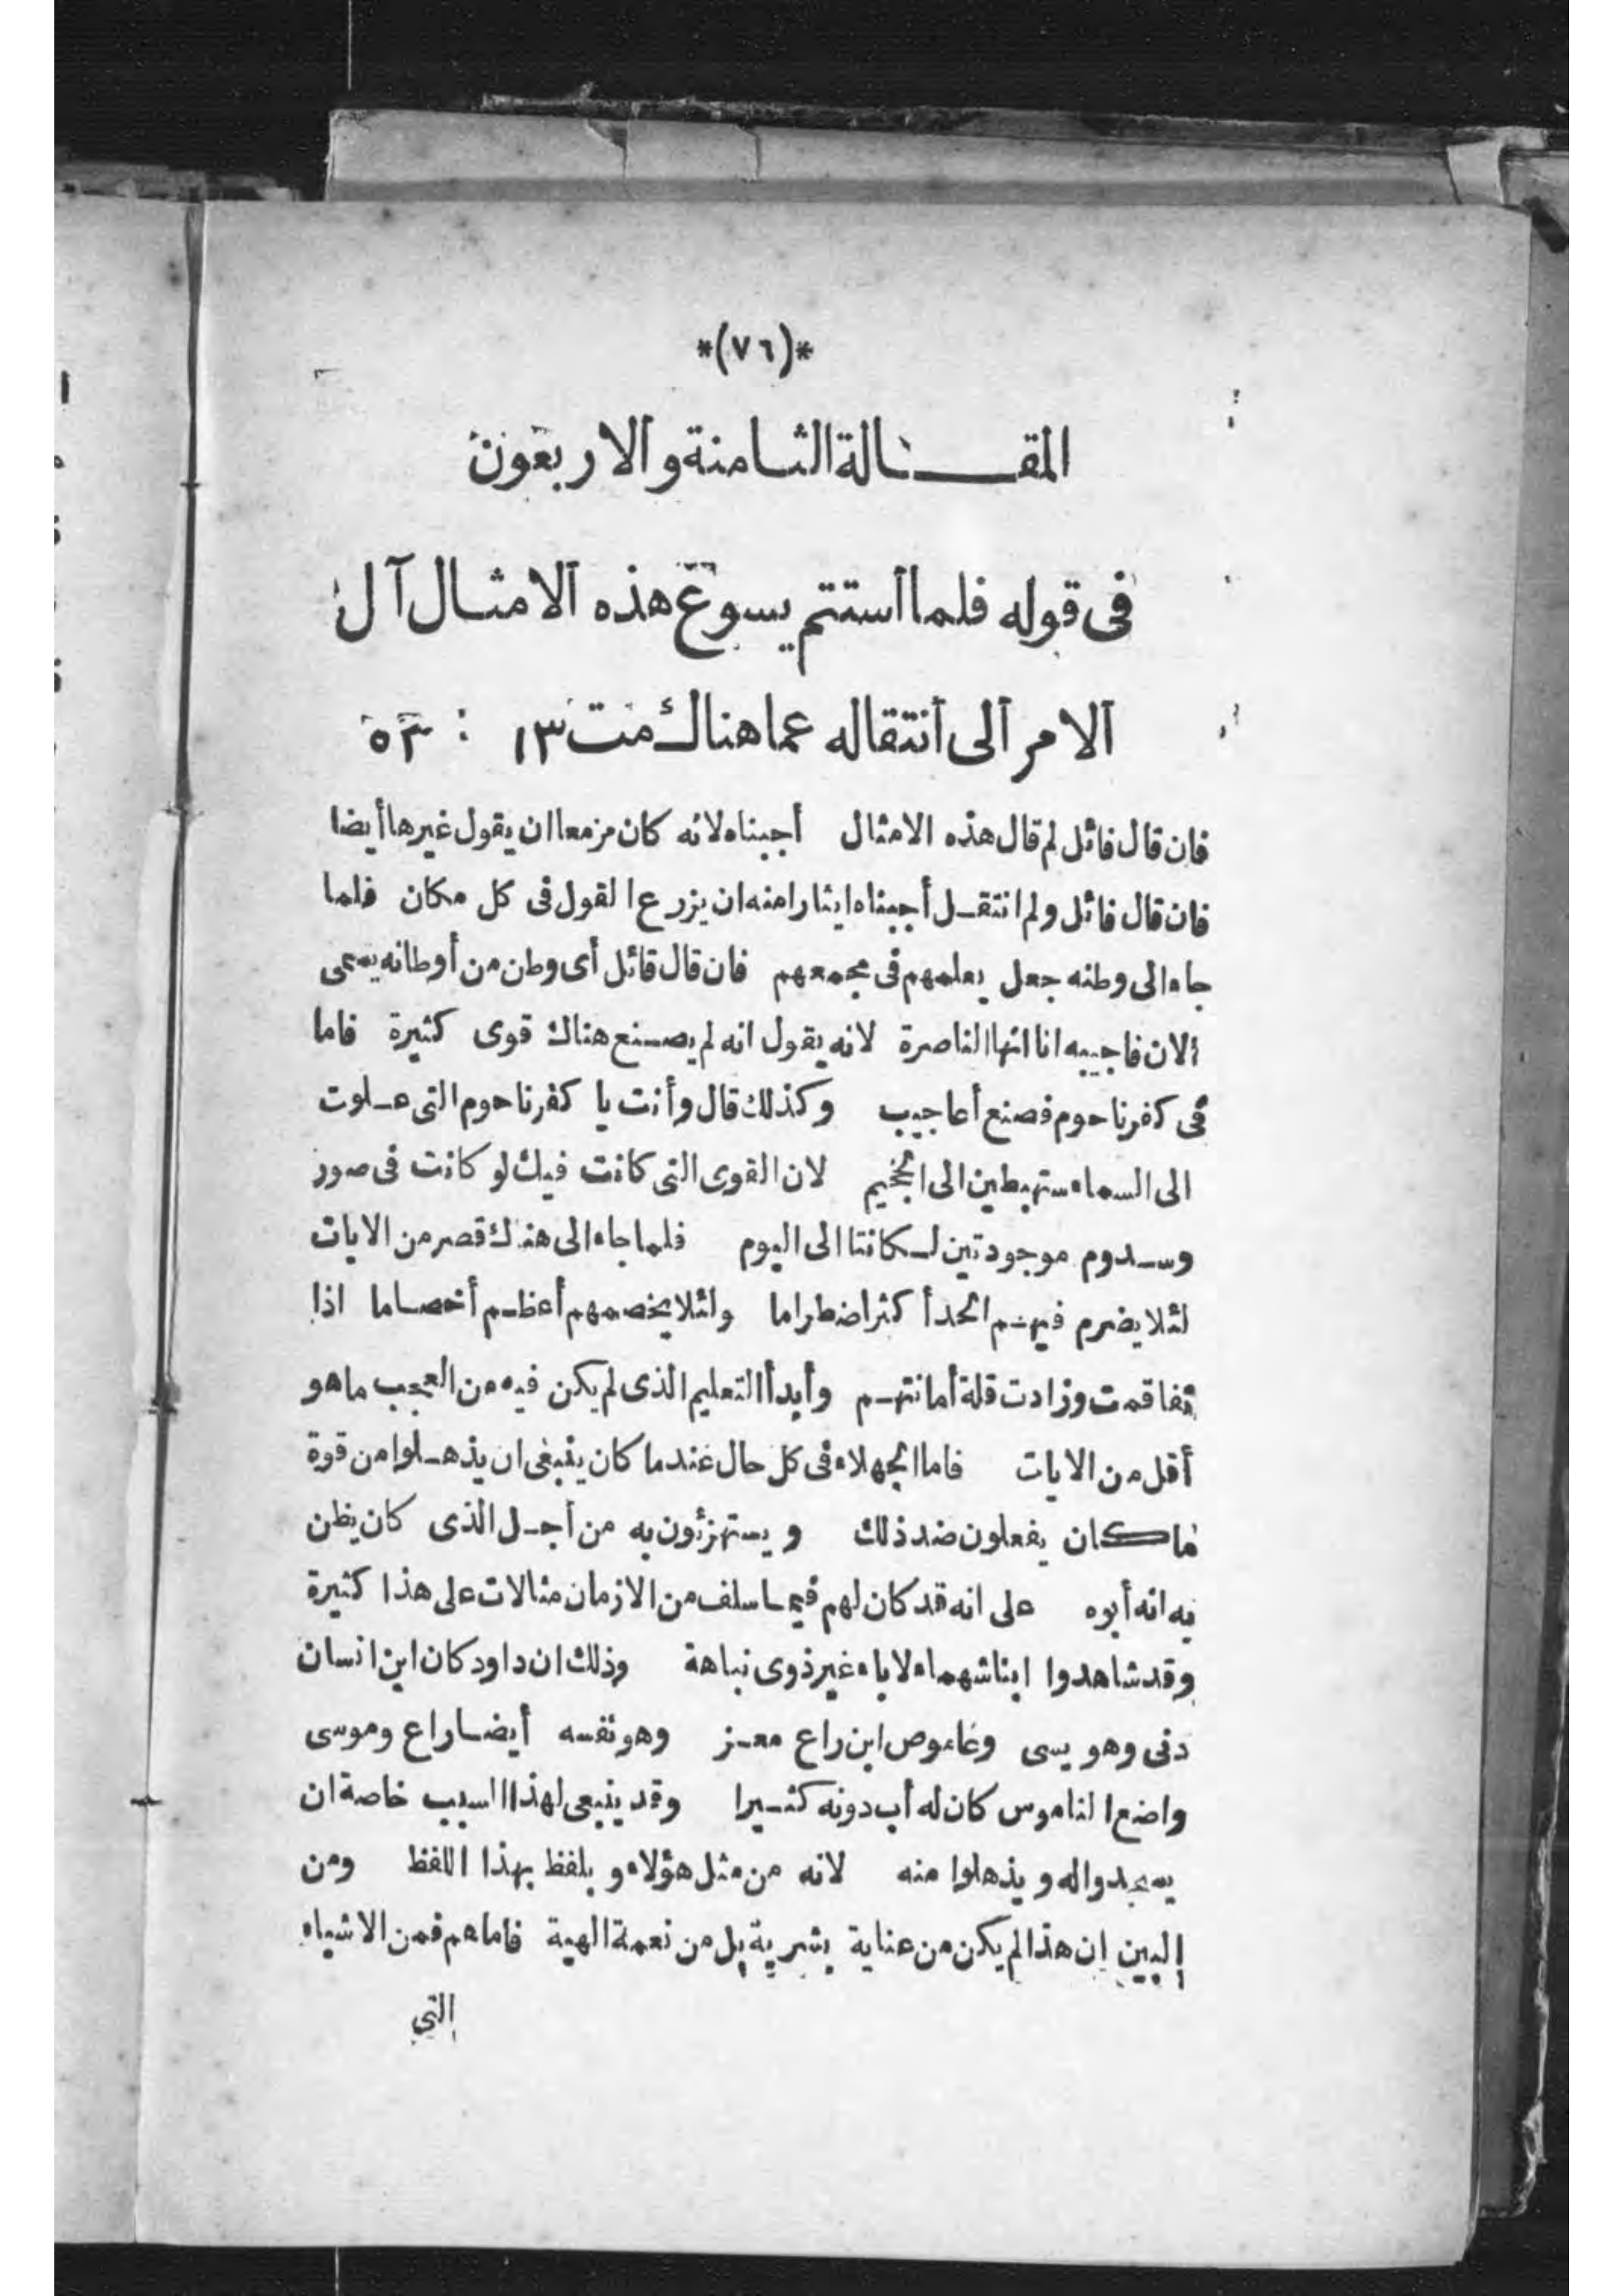 *(٧٦)*
المقـــالة الثـامنة والاربعون
فى قوله فلما أستتم يسوع هذه الامثـال آل
الامر ألى أنتقاله عما هناك مت ١٣ : ٥٣
فان قال قائل لم قال هذه الامثال أجبناه لانه كان مزمعا ان يقول غيرها أيضا
فان قال قائل ولم انتقـل أجبناه ايثارا منه ان يزرع القول فى كل مكان فلما
جاء الى وطنه جعل يعلمهم فى مجمعهم فان قال قائل أى وطن من أوطانه يسمى
الان فاجيبه انا انها الناصرة لانه يقول انه لم يصـنع هناك قوى كثيرة فاما
فى كفرناحوم فصنع أعاجيب وكذلك قال وأنت يا كفرناحوم التى عـلوت
الى السماء ستهبطين الى الجحيم لان القوى التى كانت فيك لو كانت فى صور
وسـدوم موجودتين لـكانتا الى اليوم فلما جاء الى هناك قصر من الايات
لئلا يضرم فيهـم الحسد أكثر اضطراما ولئلا يخصمهم أعظـم أخصـاما اذا
تفاقمت وزادت قلة أمانتهـم وأبدأ التعليم الذى لم يكن فيه من العجب ما هو
أقل من الايات فاما الجهلاء فى كل حال عندما كان ينبغى ان يذهـلوا من قوة
ما كان يفعلون ضد ذلك ويستهزؤن به من أجـل الذى كان يظن
به انه أبوه على انه قد كان لهم فيمـا سلف من الازمان مثالات على هذا كثيرة
وقد شاهدوا ابنا شهماء لاباء غير ذوى نباهة وذلك ان داود كان ابن انسان
دنى وهو يسى وغاموص ابن راع معـز وهو نفسه أيضـا راع وموسى
واضع الناموس كان له أب دونه كثـيرا وقد ينبعى لهذا السبب خاصة ان
يسجدوا له ويذهلوا منه لانه من مثل هؤلاء و يلفظ بهذا اللفظ ومن
البين ان هذا لم يكن من عناية بشرية بل من نعمة الهية فاما هم فمن الاشياء
التى